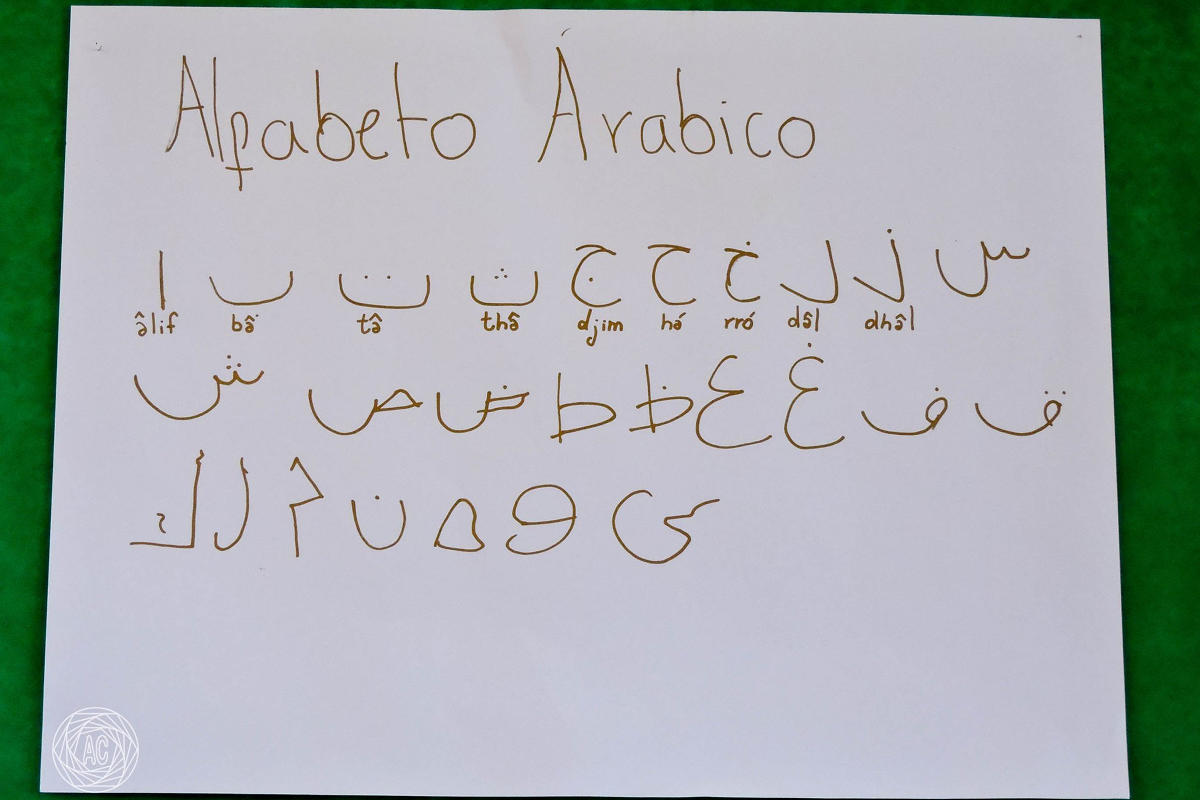 Alfabeto Árabico
ا ب ت ث ج ح خ د ذ س
âlif bâ tâ thâ djim há rró dâl dhâl
ش ص ض ط ظ ع غ ف ق
ك ل م ن ه و ى
AC